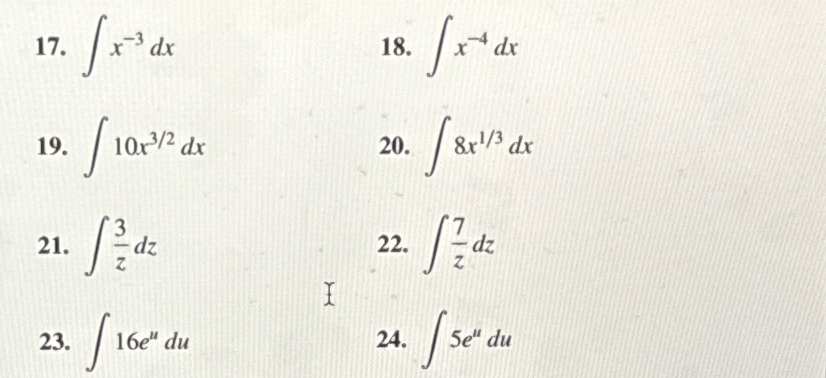 17. ∫ x⁻³ dx 18. ∫ x⁻⁴ dx
19. ∫ 10x^{3/2} dx 20. ∫ 8x^{1/3} dx
21. ∫ 3/z dz 22. ∫ 7/z dz
23. ∫ 16eᵘ du 24. ∫ 5eᵘ du